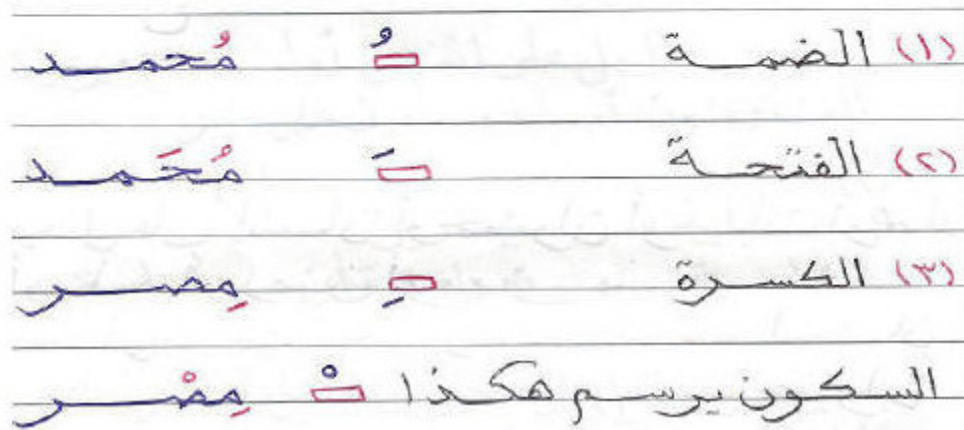 (١) الضمة ▭ُ مُحمد
(٢) الفتحة ▭َ مُحَمد
(٣) الكسرة ▭ِ مِصر
السكون يرسم هكذا ▭ْ مِصْر